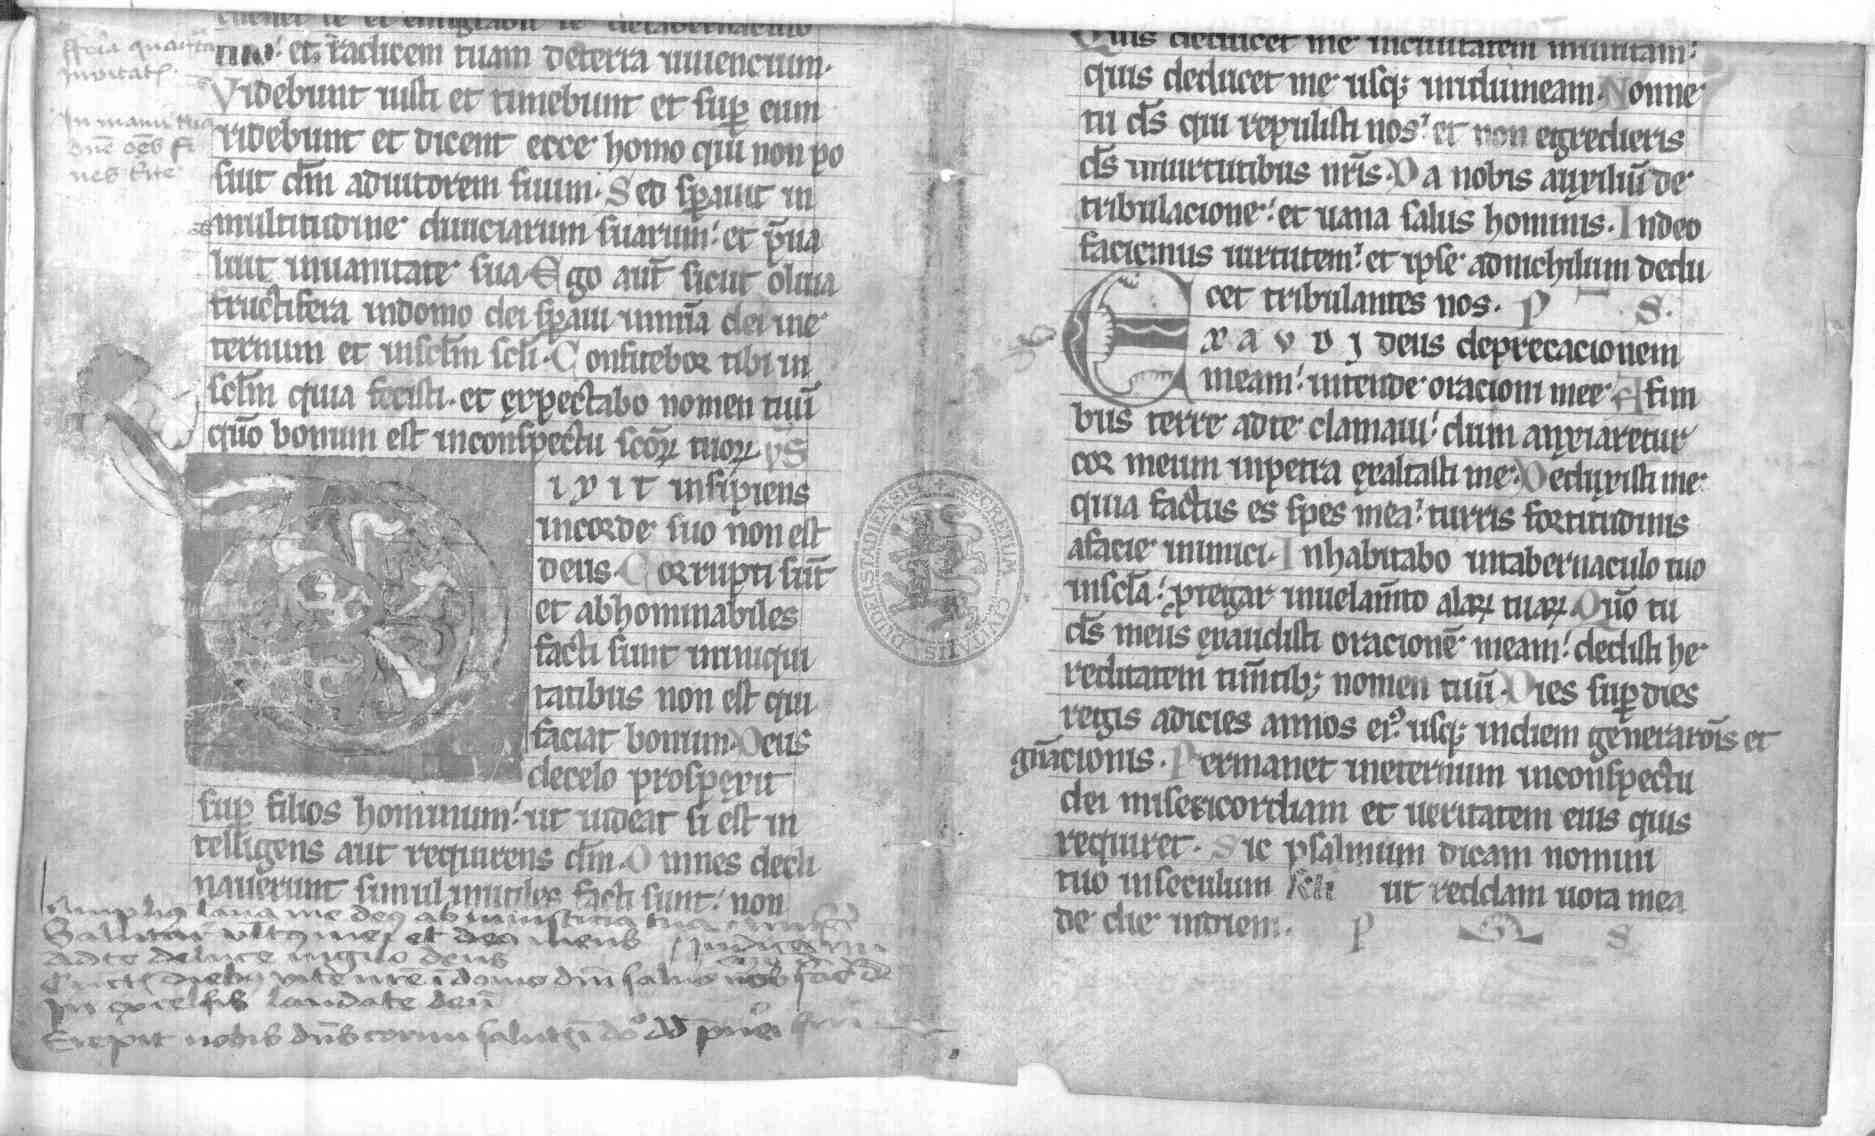 ffeīa quarta
Inuitatꝭ.
In manu tua
dn̄e oēs fi
nes t̄re
euellet te et emigrabit te detabernaculo
tuo: et radicem tuam deterra uiuencium.
Videbunt iusti et timebunt et sup eum
ridebunt et dicent ecce homo qui non po
suit dm̄ adiutorem suum. Sed sꝑauit in
multitudine diuiciarum suarum: et p̄ua
luit inuanitate sua. Ego aut̄ sicut oliua
fructifera indomo dei sꝑaui inmīa dei ine
ternum et insclm̄ scl̄i. Confitebor tibi in
sclm̄ quia fecisti. et expectabo nomen tuū
qūo bonum est inconspectu scōꝝ tuoꝝ. PS
IXIT insipiens
incorde suo non est
deus. Corrupti sūt
et abhominabiles
facti sunt ininiqui
tatibus non est qui
faciat bonum. Deus
decelo prospexit
suꝑ filios hominum: ut uideat si est in
telligens aut requirens dm̄. Omnes decli
nauerunt simul inutiles facti sunt: non
Amplius laua me deus ab iniusticia tua
Salutar uultus mei et deus meus
Adte deluce uigilo deus
Cunctꝭ diebꝫ uite nr̄e ī domo dn̄i saluos nos fac
In excelsis laudate deū
Erexit nobis dn̄s cornu salutꝭ
Quis deducet me inciuitatem munitam:
quis deducet me usqꝫ inidumeam. Nonne
tu ds̄ qui repulisti nos: et non egredieris
ds̄ inuirtutibus nr̄is. Da nobis auxiliū de
tribulacione: et uana salus hominis. Indeo
faciemus uirtutem: et ipse adnichilum dedu
cet tribulantes nos. P S.
EXAVDI deus deprecacionem
meam: intende oracioni mee. A fini
bus terre adte clamaui: dum anxiaretur
cor meum inpetra exaltasti me. Deduxisti me
quia factus es spes mea: turris fortitudinis
afacie inimici. Inhabitabo intabernaculo tuo
inscl̄a: ꝓtegar inuelam̄to alaꝝ tuaꝝ. Qūo tu
ds̄ meus exaudisti oracionē meam: dedisti he
reditatem tim̄tibꝫ nomen tuū. Dies suꝑ dies
regis adicies annos eiꝰ usqꝫ indiem generatōis et
gn̄acionis. Permanet ineternum inconspectu
dei misericordiam et ueritatem eius quis
requiret. Sic psalmum dicam nomini
tuo inseculum scl̄i ut reddam uota mea
de die indiem. P S
SECRETUM CIVITATIS DUDERSTADIENSIS